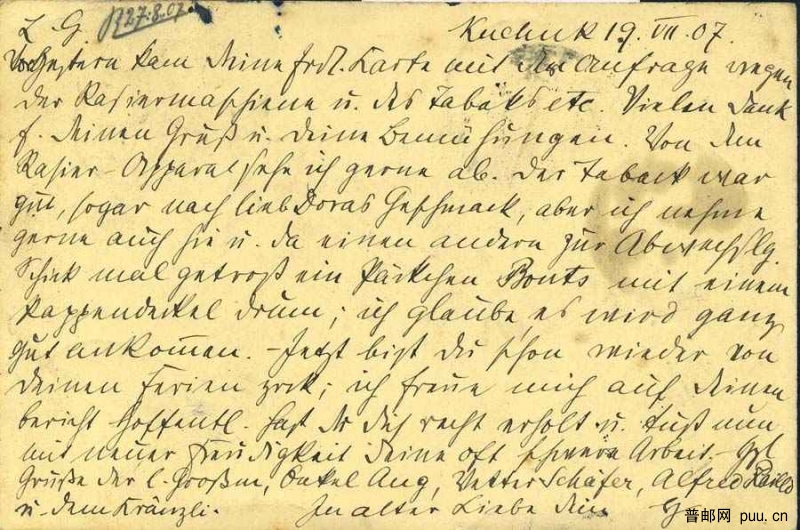 L. G. R 27.8.07. Kuchuk 19. VII. 07.
Vorgestern kam deine frdl. Karte mit der Anfrage wegen
der Rasiermaschiene u. des Tabaks etc. Vielen Dank
f. deinen Gruß u. deine Bemühungen. Von dem
Rasier-Apparat sehe ich gerne ab. Der Taback war
gut, sogar nach lieb Doras Geschmack, aber ich nehme
gerne auch hie u. da einen andern zur Abwechslg.
Schick mal getrost ein Päckchen Bonts mit einem
Kappendeckel drum; ich glaube, es wird ganz
gut ankommen. - Jetzt bist du schon wieder von
deinen Ferien zrck; ich freue mich auf deinen
bericht hoffentl. hast du dich recht erholt u. tust nun
mit neuer Freudigkeit deine oft schwere Arbeit. -
Grüße der l. Großm, Onkel Aug, Vetter Schäfer, Alfred
u. dem Kränzli. In alter Liebe dein G
普邮网 puu.cn